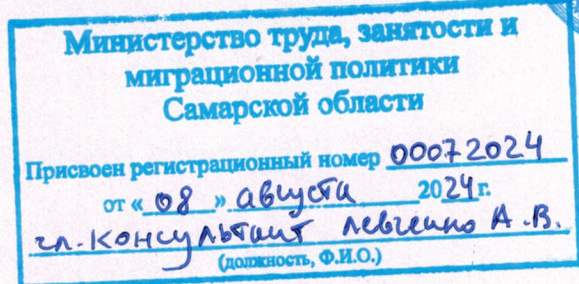 Министерство труда, занятости и
миграционной политики
Самарской области
Присвоен регистрационный номер 00072024
от «08» августа 2024г.
гл. консультант Левченко А.В.
(должность, Ф.И.О.)